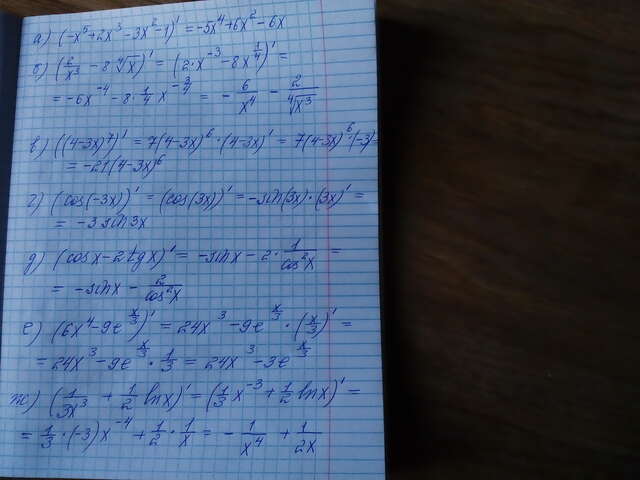 а) (-x⁵+2x³-3x²-1)' = -5x⁴+6x²-6x
б) (2/x³ - 8∜x)' = (2·x⁻³-8x^(1/4))' =
= -6x⁻⁴-8·1/4 x^(-3/4) = -6/x⁴ - 2/∜x³
в) ((4-3x)⁷)' = 7(4-3x)⁶·(4-3x)' = 7(4-3x)⁶·(-3)=
= -21(4-3x)⁶
г) (cos(-3x))' = (cos(3x))' = -sin(3x)·(3x)' =
= -3sin3x
д) (cosx-2tgx)' = -sinx-2·1/cos²x =
= -sinx - 2/cos²x
е) (6x⁴-9e^(x/3))' = 24x³-9e^(x/3)·(x/3)' =
= 24x³-9e^(x/3)·1/3 = 24x³-3e^(x/3)
ж) (1/3x³ + 1/2 lnx)' = (1/3 x⁻³+1/2 lnx)' =
= 1/3·(-3)x⁻⁴+1/2·1/x = -1/x⁴ + 1/2x